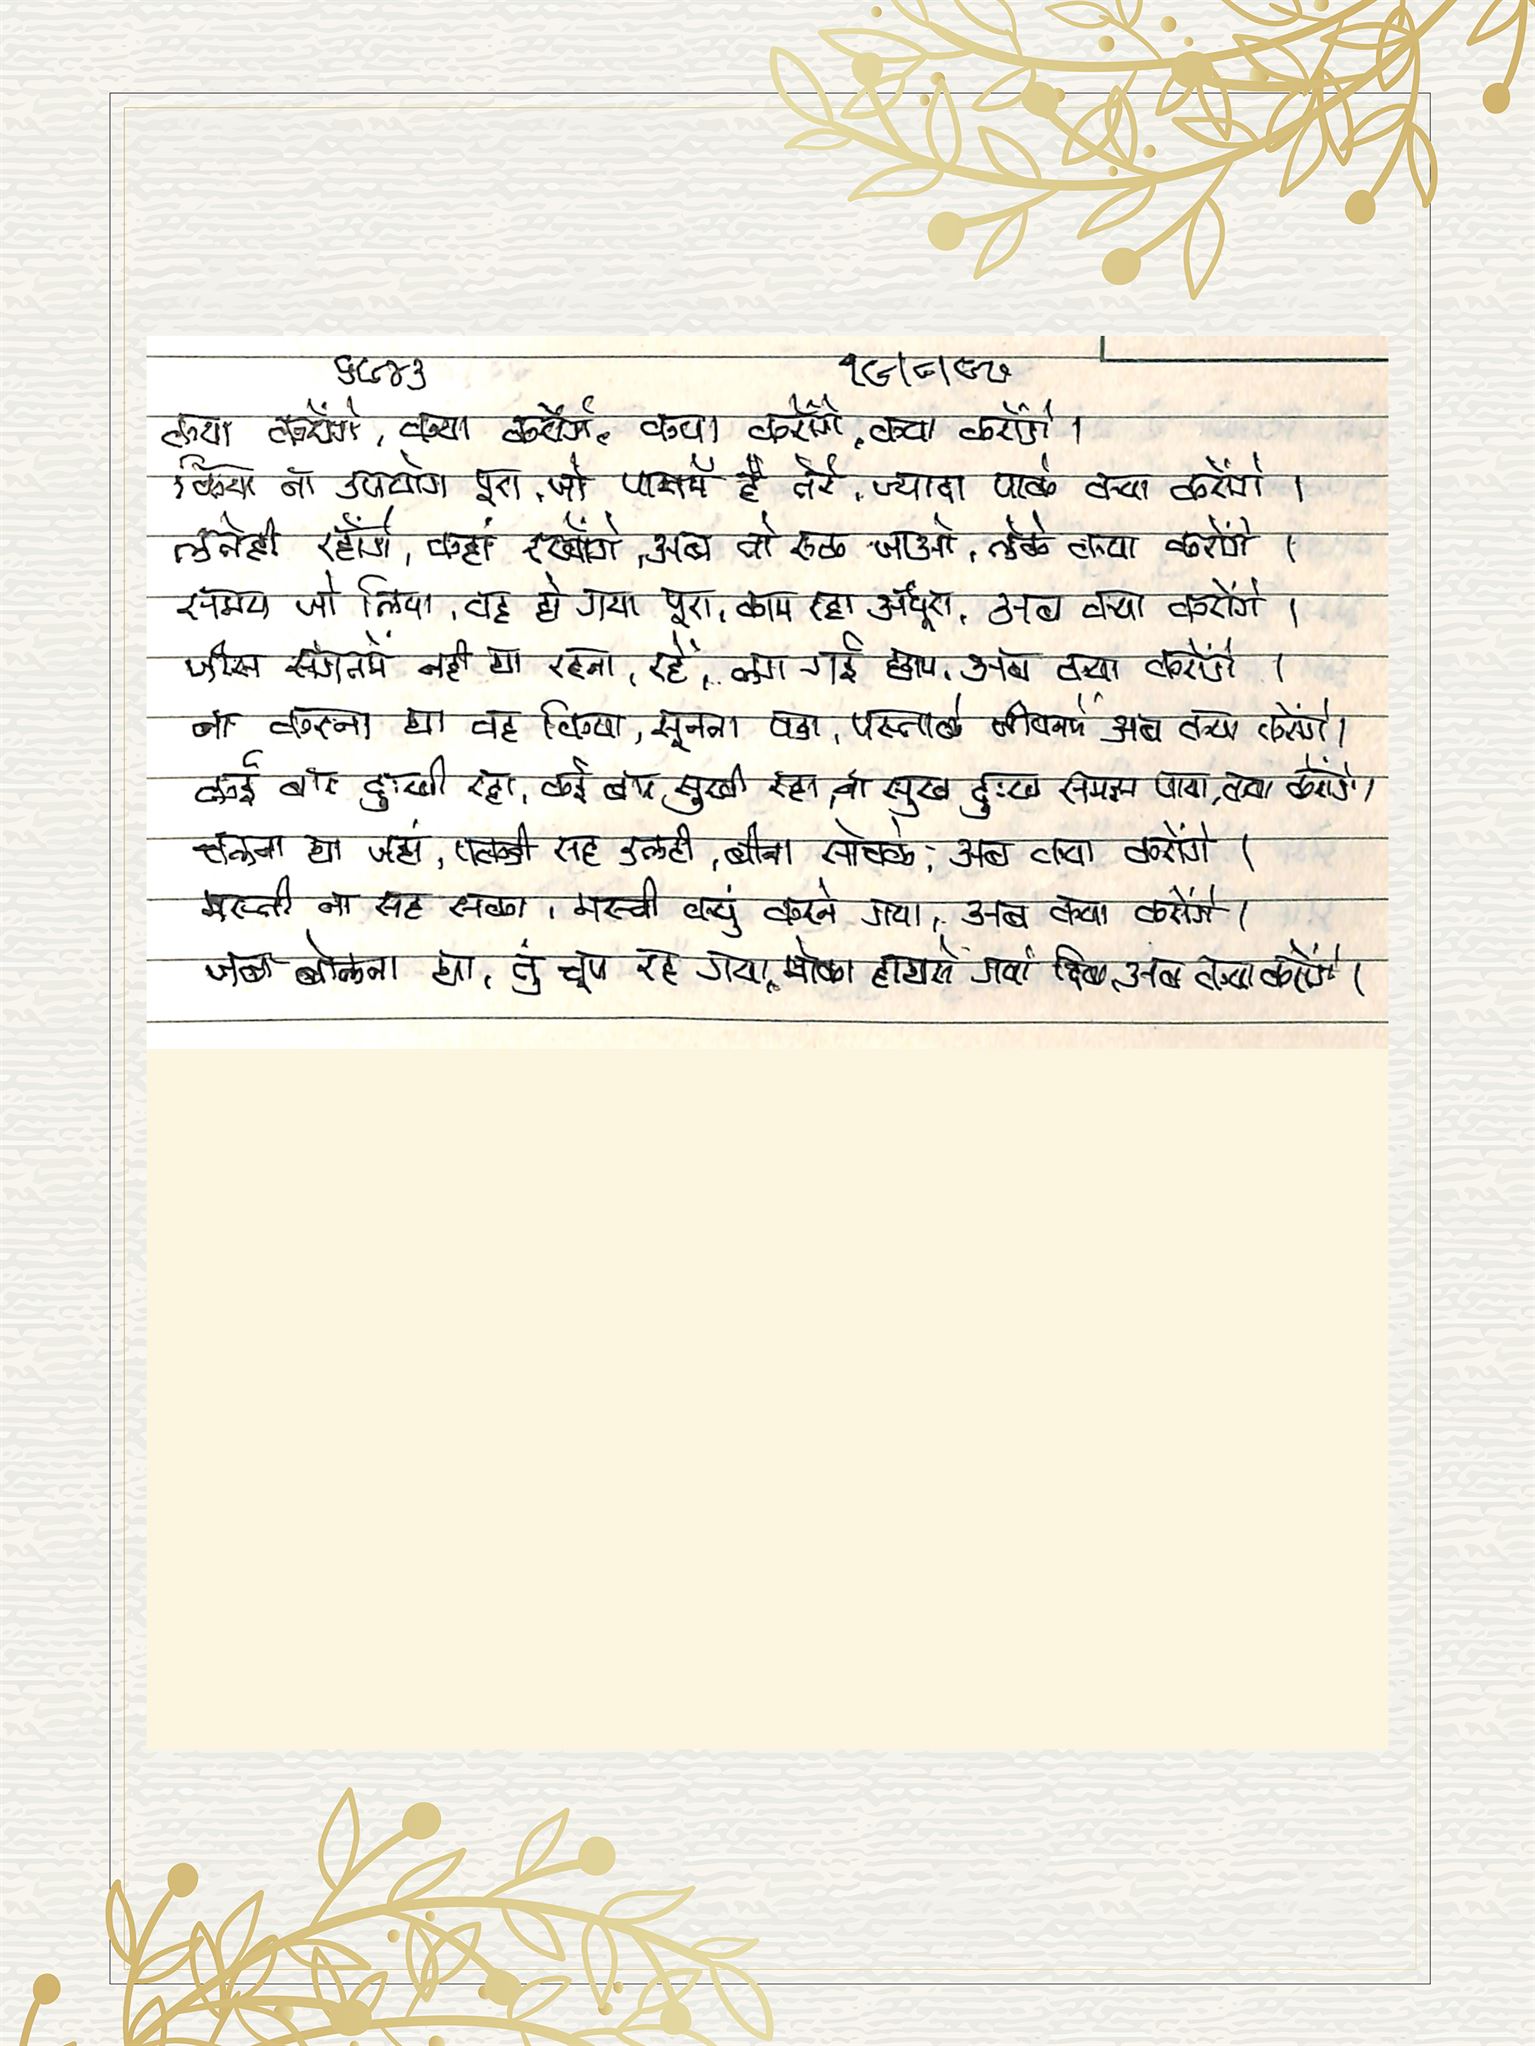 क्या करोंगे, क्या करोंगे, क्या करोंगे, क्या करोंगे ।
किया ना उपयोग पूरा, जो पासमें है तेरे, ज्यादा पाके क्या करोंगे ।
लेतेही रहोंगे, कहां रखोंगे, अब तो रूक जाओ, लेके क्या करोंगे ।
समय जो लिया, वह हो गया पूरा, काम रहा अधूरा, अब क्या करोंगे ।
जीस संगतमें नही था रहना, रहें, लग गई छाप, अब क्या करोंगे ।
ना करना था वह किया, सूनना पडा, पस्ताके जीवनमें अब क्या करोंगे ।
कई बार दुःखी रहा, कई बार सुखी रहा, ना सुख दुःख समज पाया, क्या करोंगे ।
चलना था जहां, पकडी राह उलटी, बीना सोचके, अब क्या करोंगे ।
मस्ती ना सह सका, मस्ती क्युं करने गया, अब क्या करोंगे ।
जब बोलना था, तुं चूप रह गया, मोका हाथसे गवां दिया, अब क्या करोंगे ।